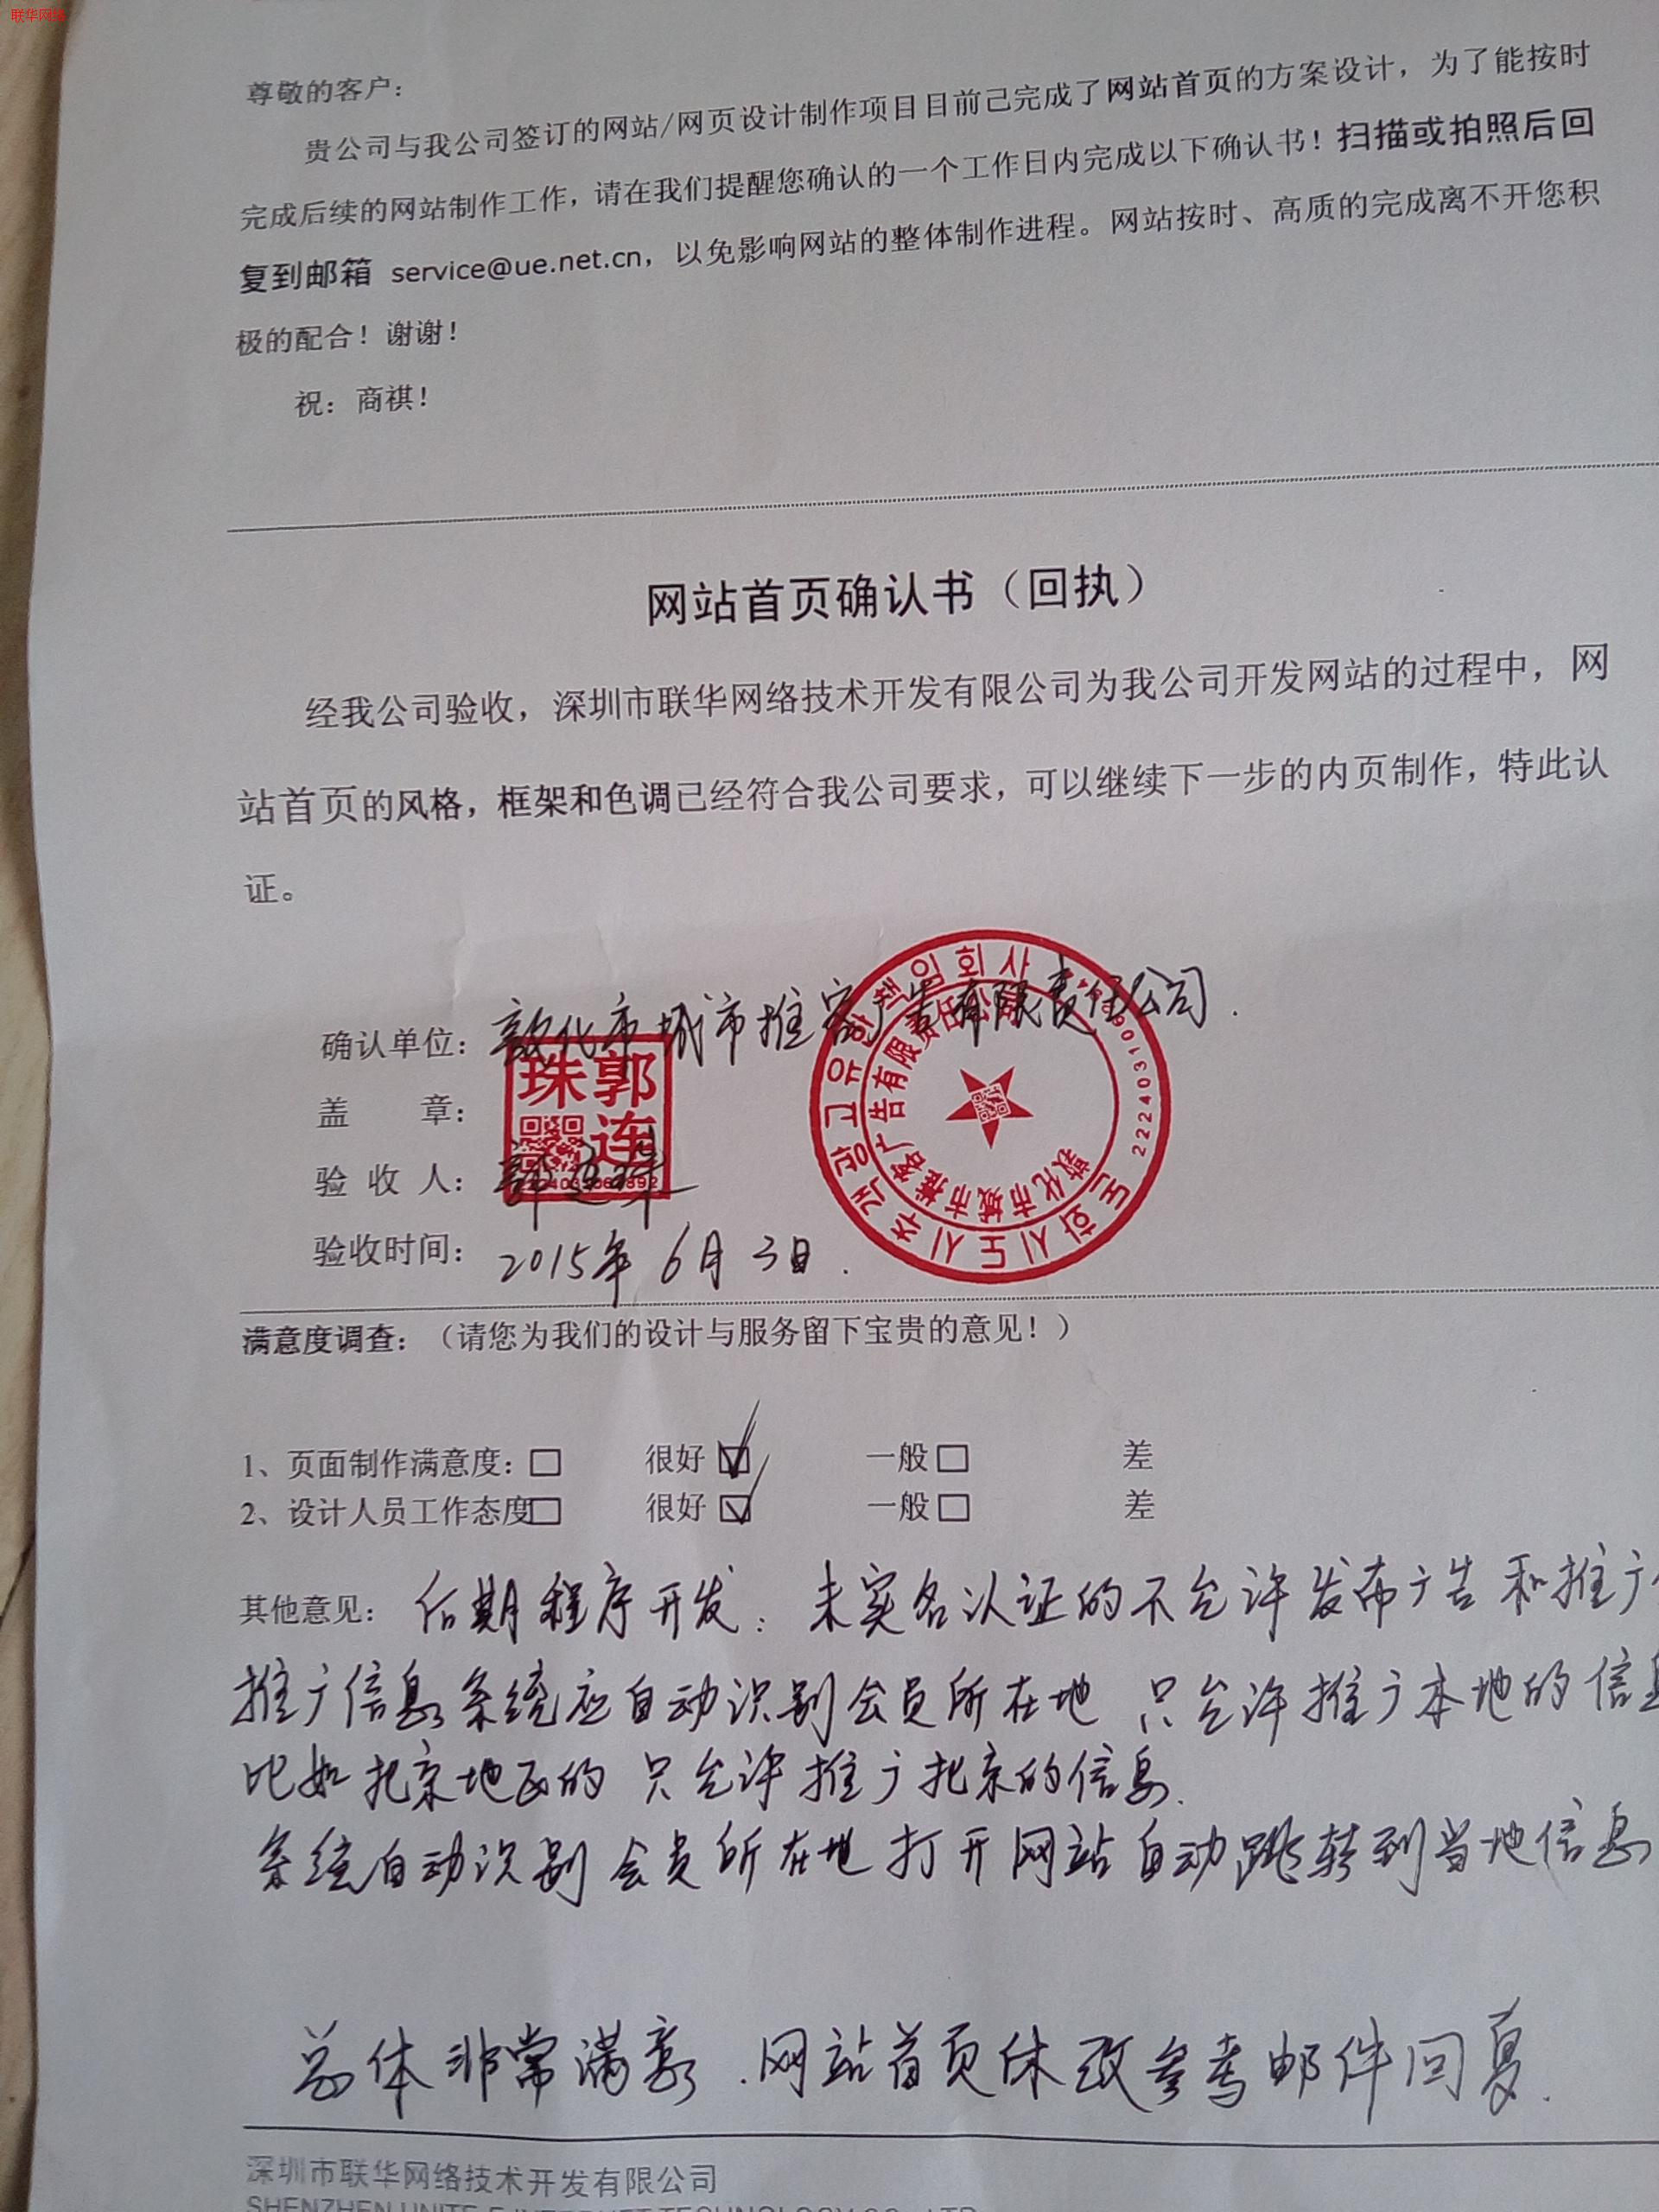 联华网络
尊敬的客户：
贵公司与我公司签订的网站/网页设计制作项目目前已完成了网站首页的方案设计，为了能按时
完成后续的网站制作工作，请在我们提醒您确认的一个工作日内完成以下确认书！扫描或拍照后回
复到邮箱 service@ue.net.cn，以免影响网站的整体制作进程。网站按时、高质的完成离不开您积
极的配合！谢谢！
祝：商祺！
网站首页确认书（回执）
经我公司验收，深圳市联华网络技术开发有限公司为我公司开发网站的过程中，网
站首页的风格，框架和色调已经符合我公司要求，可以继续下一步的内页制作，特此认
证。
确认单位：敦化市城市推客广告有限责任公司.
盖 章：
珠郭
连
验 收 人：郭连珠
验收时间：2015年6月3日.
돈화시도시추객광고유한책임회사
敦化市城市推客广告有限责任公司
满意度调查：（请您为我们的设计与服务留下宝贵的意见！）
1、页面制作满意度：□ 很好 ☑ 一般 □ 差
2、设计人员工作态度□ 很好 ☑ 一般 □ 差
其他意见：后期程序开发：未实名认证的不允许发布广告和推广
推广信息系统应自动识别会员所在地 只允许推广本地的信息
比如北京地区的 只允许推广北京的信息.
系统自动识别会员所在地打开网站自动跳转到当地信息
总体非常满意.网站首页休改参考邮件回复.
深圳市联华网络技术开发有限公司